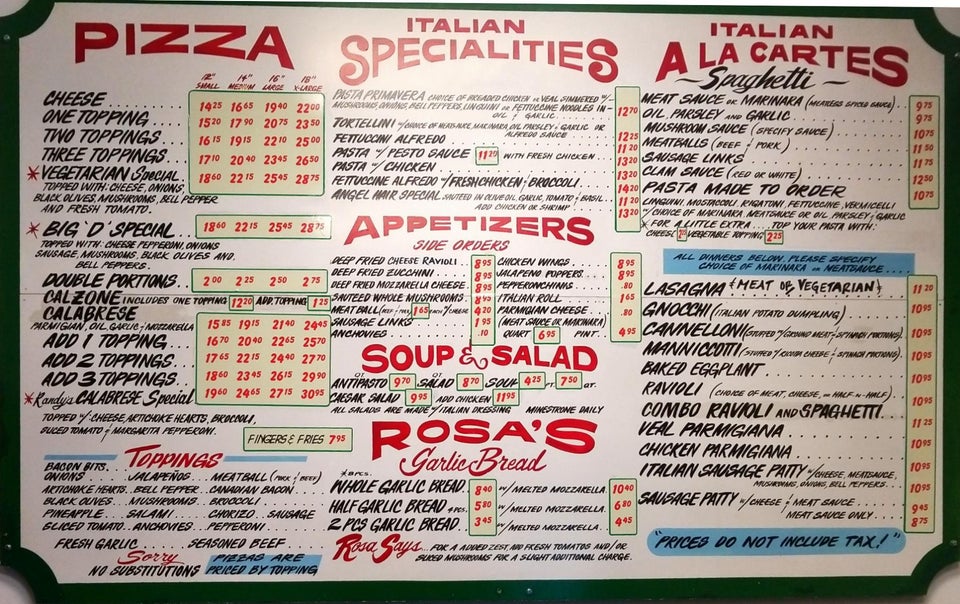 PIZZA
12" SMALL 14" MEDIUM 16" LARGE 18" X-LARGE
CHEESE 14 25 16 65 19 40 22 00
ONE TOPPING 15 20 17 90 20 75 23 50
TWO TOPPINGS 16 15 19 15 22 10 25 00
THREE TOPPINGS 17 10 20 40 23 45 26 50
*VEGETARIAN Special 18 60 22 15 25 45 28 75
TOPPED WITH: CHEESE, ONIONS,
BLACK OLIVES, MUSHROOMS, BELL PEPPER
AND FRESH TOMATO.
*BIG 'D' SPECIAL 18 60 22 15 25 45 28 75
TOPPED WITH: CHEESE, PEPPERONI, ONIONS
SAUSAGE, MUSHROOMS, BLACK OLIVES AND
BELL PEPPERS.
DOUBLE PORTIONS 2 00 2 25 2 50 2 75
CALZONE INCLUDES ONE TOPPING 12 20 ADD. TOPPING 1 25
CALABRESE
PARMIGIAN, OIL, GARLIC & MOZZARELLA 15 85 19 15 21 40 24 45
ADD 1 TOPPING 16 70 20 40 22 65 25 70
ADD 2 TOPPINGS 17 65 22 15 24 40 27 70
ADD 3 TOPPINGS 18 60 23 45 26 15 29 90
*Randy's CALABRESE Special 19 60 24 65 27 15 30 95
TOPPED W/CHEESE, ARTICHOKE HEARTS, BROCCOLI,
SLICED TOMATO & MARGARITA PEPPERONI.
FINGERS & FRIES 7 95
TOPPINGS
BACON BITS
ONIONS JALAPEÑOS MEATBALL (PORK & BEEF)
ARTICHOKE HEARTS BELL PEPPER CANADIAN BACON
BLACK OLIVES MUSHROOMS BROCCOLI
PINEAPPLE SALAMI CHORIZO SAUSAGE
SLICED TOMATO ANCHOVIES PEPPERONI
FRESH GARLIC SEASONED BEEF
Sorry
NO SUBSTITUTIONS
PIZZAS ARE
PRICED BY TOPPING
ITALIAN
SPECIALITIES
PASTA PRIMAVERA CHOICE OF BREADED CHICKEN OR VEAL SIMMERED W/
MUSHROOMS, ONIONS, BELL PEPPERS, LINGUINI OR FETTUCCINE NOODLES IN
OIL & GARLIC 12 70
TORTELLINI W/CHOICE OF MEATSAUCE, MARINARA, OIL, PARSLEY & GARLIC OR
ALFREDO SAUCE 12 25
FETTUCCINI ALFREDO 11 20
PASTA W/ PESTO SAUCE 11 20 WITH FRESH CHICKEN 13 20
PASTA W/ CHICKEN 13 20
FETTUCCINE ALFREDO W/FRESH CHICKEN & BROCCOLI 14 20
ANGEL HAIR SPECIAL SAUTEED IN OLIVE OIL, GARLIC, TOMATO & BASIL 11 20
ADD CHICKEN OR SHRIMP 13 20
APPETIZERS
SIDE ORDERS
DEEP FRIED CHEESE RAVIOLI 8 95
DEEP FRIED ZUCCHINI 8 95
DEEP FRIED MOZZARELLA CHEESE 8 95
SAUTEED WHOLE MUSHROOMS 8 95
MEATBALL (BEEF & PORK) 1 65 EACH W/CHEESE 4 20
SAUSAGE LINKS 1 95
ANCHOVIES .10
CHICKEN WINGS 8 95
JALAPENO POPPERS 8 95
PEPPERONCHINIS .80
ITALIAN ROLL 1 65
PARMIGIAN CHEESE .80
(MEAT SAUCE OR MARINARA)
QUART 6 95 PINT 4 95
SOUP & SALAD
ANTIPASTO 9 70 SALAD 8 70 SOUP 4 25 PT. 7 50 QT.
CAESAR SALAD 9 95 ADD CHICKEN 11 95
ALL SALADS ARE MADE W/ITALIAN DRESSING MINESTRONE DAILY
ROSA'S
Garlic Bread
*8 PCS.
WHOLE GARLIC BREAD 8 40 W/ MELTED MOZZARELLA 10 40
HALF GARLIC BREAD 4 PCS. 5 80 W/ MELTED MOZZARELLA 6 80
2 PCS GARLIC BREAD 3 45 W/MELTED MOZZARELLA 4 45
Rosa Says... FOR A ADDED ZEST AND FRESH TOMATOS AND/OR
SLICED MUSHROOMS FOR A SLIGHT ADDITIONAL CHARGE.
ITALIAN
A LA CARTES
~Spaghetti~
MEAT SAUCE OR MARINARA (MEATLESS SPICED SAUCE) 9 75
OIL, PARSLEY AND GARLIC 9 75
MUSHROOM SAUCE (SPECIFY SAUCE) 10 75
MEATBALLS (BEEF & PORK) 11 50
SAUSAGE LINKS 11 75
CLAM SAUCE (RED OR WHITE) 12 50
PASTA MADE TO ORDER 10 75
LINGUINI, MOSTACCIOLI, RIGATONI, FETTUCCINE, VERMICELLI
W/CHOICE OF MARINARA, MEATSAUCE OR OIL, PARSLEY & GARLIC
*FOR A LITTLE EXTRA... TOP YOUR PASTA WITH:
CHEESE VEGETABLE TOPPING 2 25
ALL DINNERS BELOW, PLEASE SPECIFY
CHOICE OF MARINARA OR MEATSAUCE
LASAGNA {MEAT OR VEGETARIAN} 11 20
GNOCCHI (ITALIAN POTATO DUMPLING) 10 95
CANNELLONI (STUFFED W/GROUND MEAT & SPINACH PORTIONS) 10 95
MANNICCOTTI (STUFFED W/RICOTTA CHEESE & SPINACH PORTIONS) 10 95
BAKED EGGPLANT 10 95
RAVIOLI (CHOICE OF MEAT, CHEESE, OR HALF-N-HALF) 10 95
COMBO RAVIOLI AND SPAGHETTI 10 95
VEAL PARMIGIANA 11 25
CHICKEN PARMIGIANA 10 95
ITALIAN SAUSAGE PATTY W/CHEESE, MEATSAUCE,
MUSHROOMS, ONIONS, BELL PEPPERS 10 95
SAUSAGE PATTY W/CHEESE & MEAT SAUCE 9 45
MEAT SAUCE ONLY 8 75
"PRICES DO NOT INCLUDE TAX!"